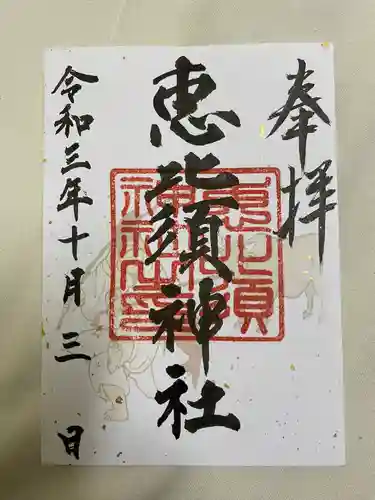 奉拝
恵比須神社
恵比須
神社印
令和三年十月三日